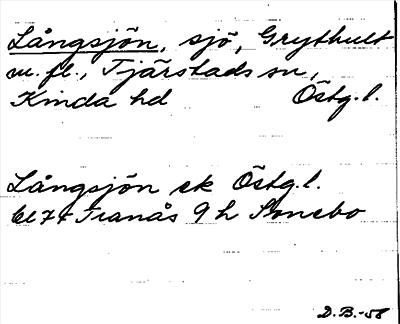 Långsjön, sjö, Grythult
m. fl., Tjärstads sn,
Kinda hd Östg.l.
Långsjön ek Östg.l.
bl 74 Tranås 9 h
D.B.-58